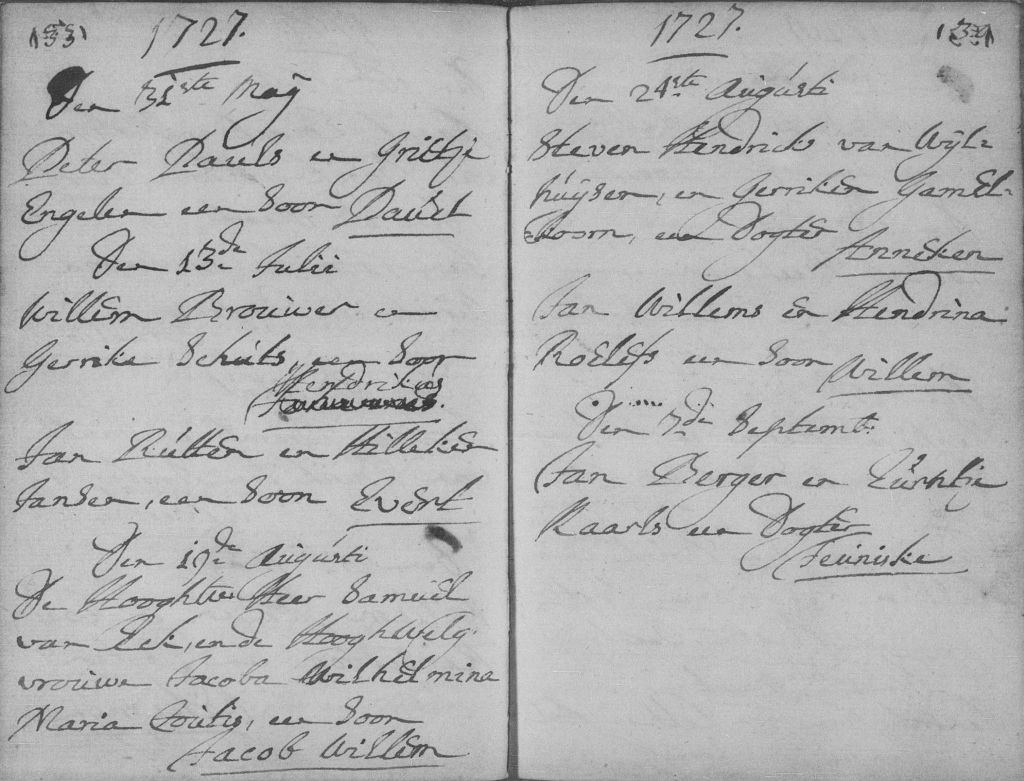 1727.
Den 31ste Maÿ
Peter Pauls en Grittje
Engelen een Soon Paúel
Den 13de Julii
Willem Broúwer en
Gerrike Schúts, een Soon
Hendrikús
Jan Rútten en Hilleken
Jansen, een Soon Evert
Den 19de Augústi
De Hoogh Heer Samúel
van Eek, en de HooghWelg.
vroúwe Jacoba Wilhelmina
Maria Coútis, een Soon
Jacob Willem
1727.
Den 24ste Augústi
Steven Hendricks van Wÿl=
húÿsen, en Gerriken Gamel=
=koorn, een Dogter
Anneken
Jan Willems en Hendrina
Roelefs een Soon Willem
Den 7de Septemb:
Jan Berger en
Kaarls een Dogter
Teuniske